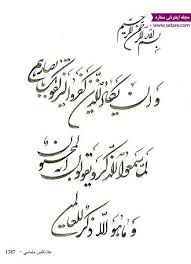 مجله اینترنتی ستاره
www.setare.com
بسم الله الرحمن الرحیم
و ان یکاد الذین کفروا لیزلقونک بابصارهم
لما سمعوا الذکر و یقولون انه لمجنون
و ما هو الا ذکر للعالمین
1387 -